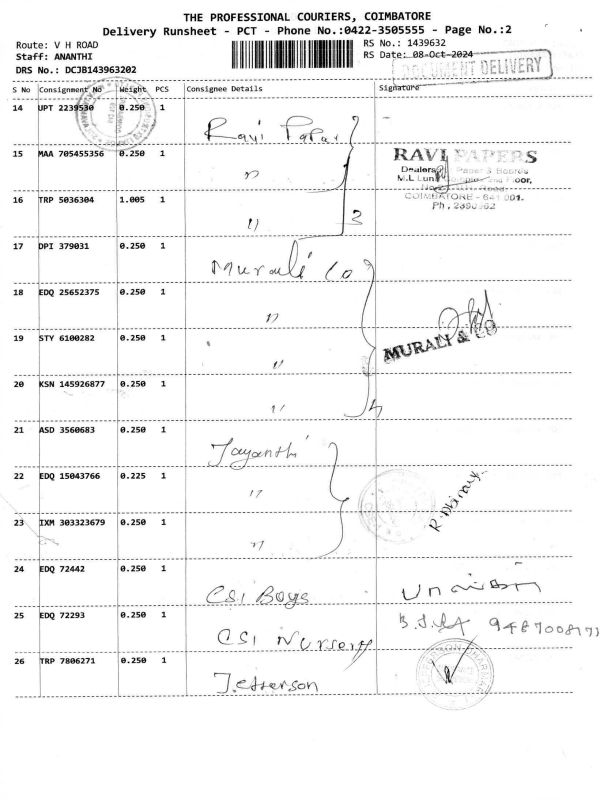 THE PROFESSIONAL COURIERS, COIMBATORE
Delivery Runsheet - PCT - Phone No.:0422-3505555 - Page No.:2
Route: V H ROAD
RS No.: 1439632
Staff: ANANTHI
RS Date: 08-Oct-2024
DRS No.: DCJB143963202
DOCUMENT DELIVERY
S No Consignment No Weight PCS Consignee Details Signature
14 UPT 2239530 0.250 1 Ravi Papar
15 MAA 705455356 0.250 1 "
RAVI PAPERS
Dealers Paper & Boards
M.L Floor,
Road,
COIMBATORE - 641 001.
Ph.
16 TRP 5036304 1.005 1 " 3
17 DPI 379031 0.250 1 Murali Co
18 EDQ 25652375 0.250 1 "
19 STY 6100282 0.250 1 " MURALI & CO
20 KSN 145926877 0.250 1 " 4
21 ASD 3560683 0.250 1 Jayanthi
22 EDQ 15043766 0.225 1 "
23 IXM 303323679 0.250 1 "
24 EDQ 72442 0.250 1 CSI Boys
25 EDQ 72293 0.250 1 CSI Nursery
26 TRP 7806271 0.250 1 Jefferson